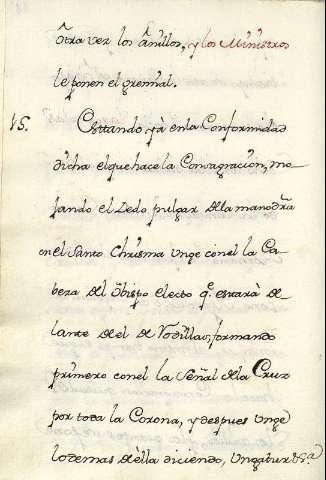 ôtra vez los ânillos, y los Ministros
le ponen el gremial.
15. Esttando yà en la Conformidad
dicha el que hace la Consagracion, mo-
jando el Dedo pulgar de la mano drã
en el Santo Chrisma unge con el la Ca-
beza del Obispo electo q.e estarà de-
lante de èl de Rodillas, formando
primero con el la Señal de la Cruz
por toda la Corona, y despues unge
lo demas de ella diciendo, Ungatur &.a